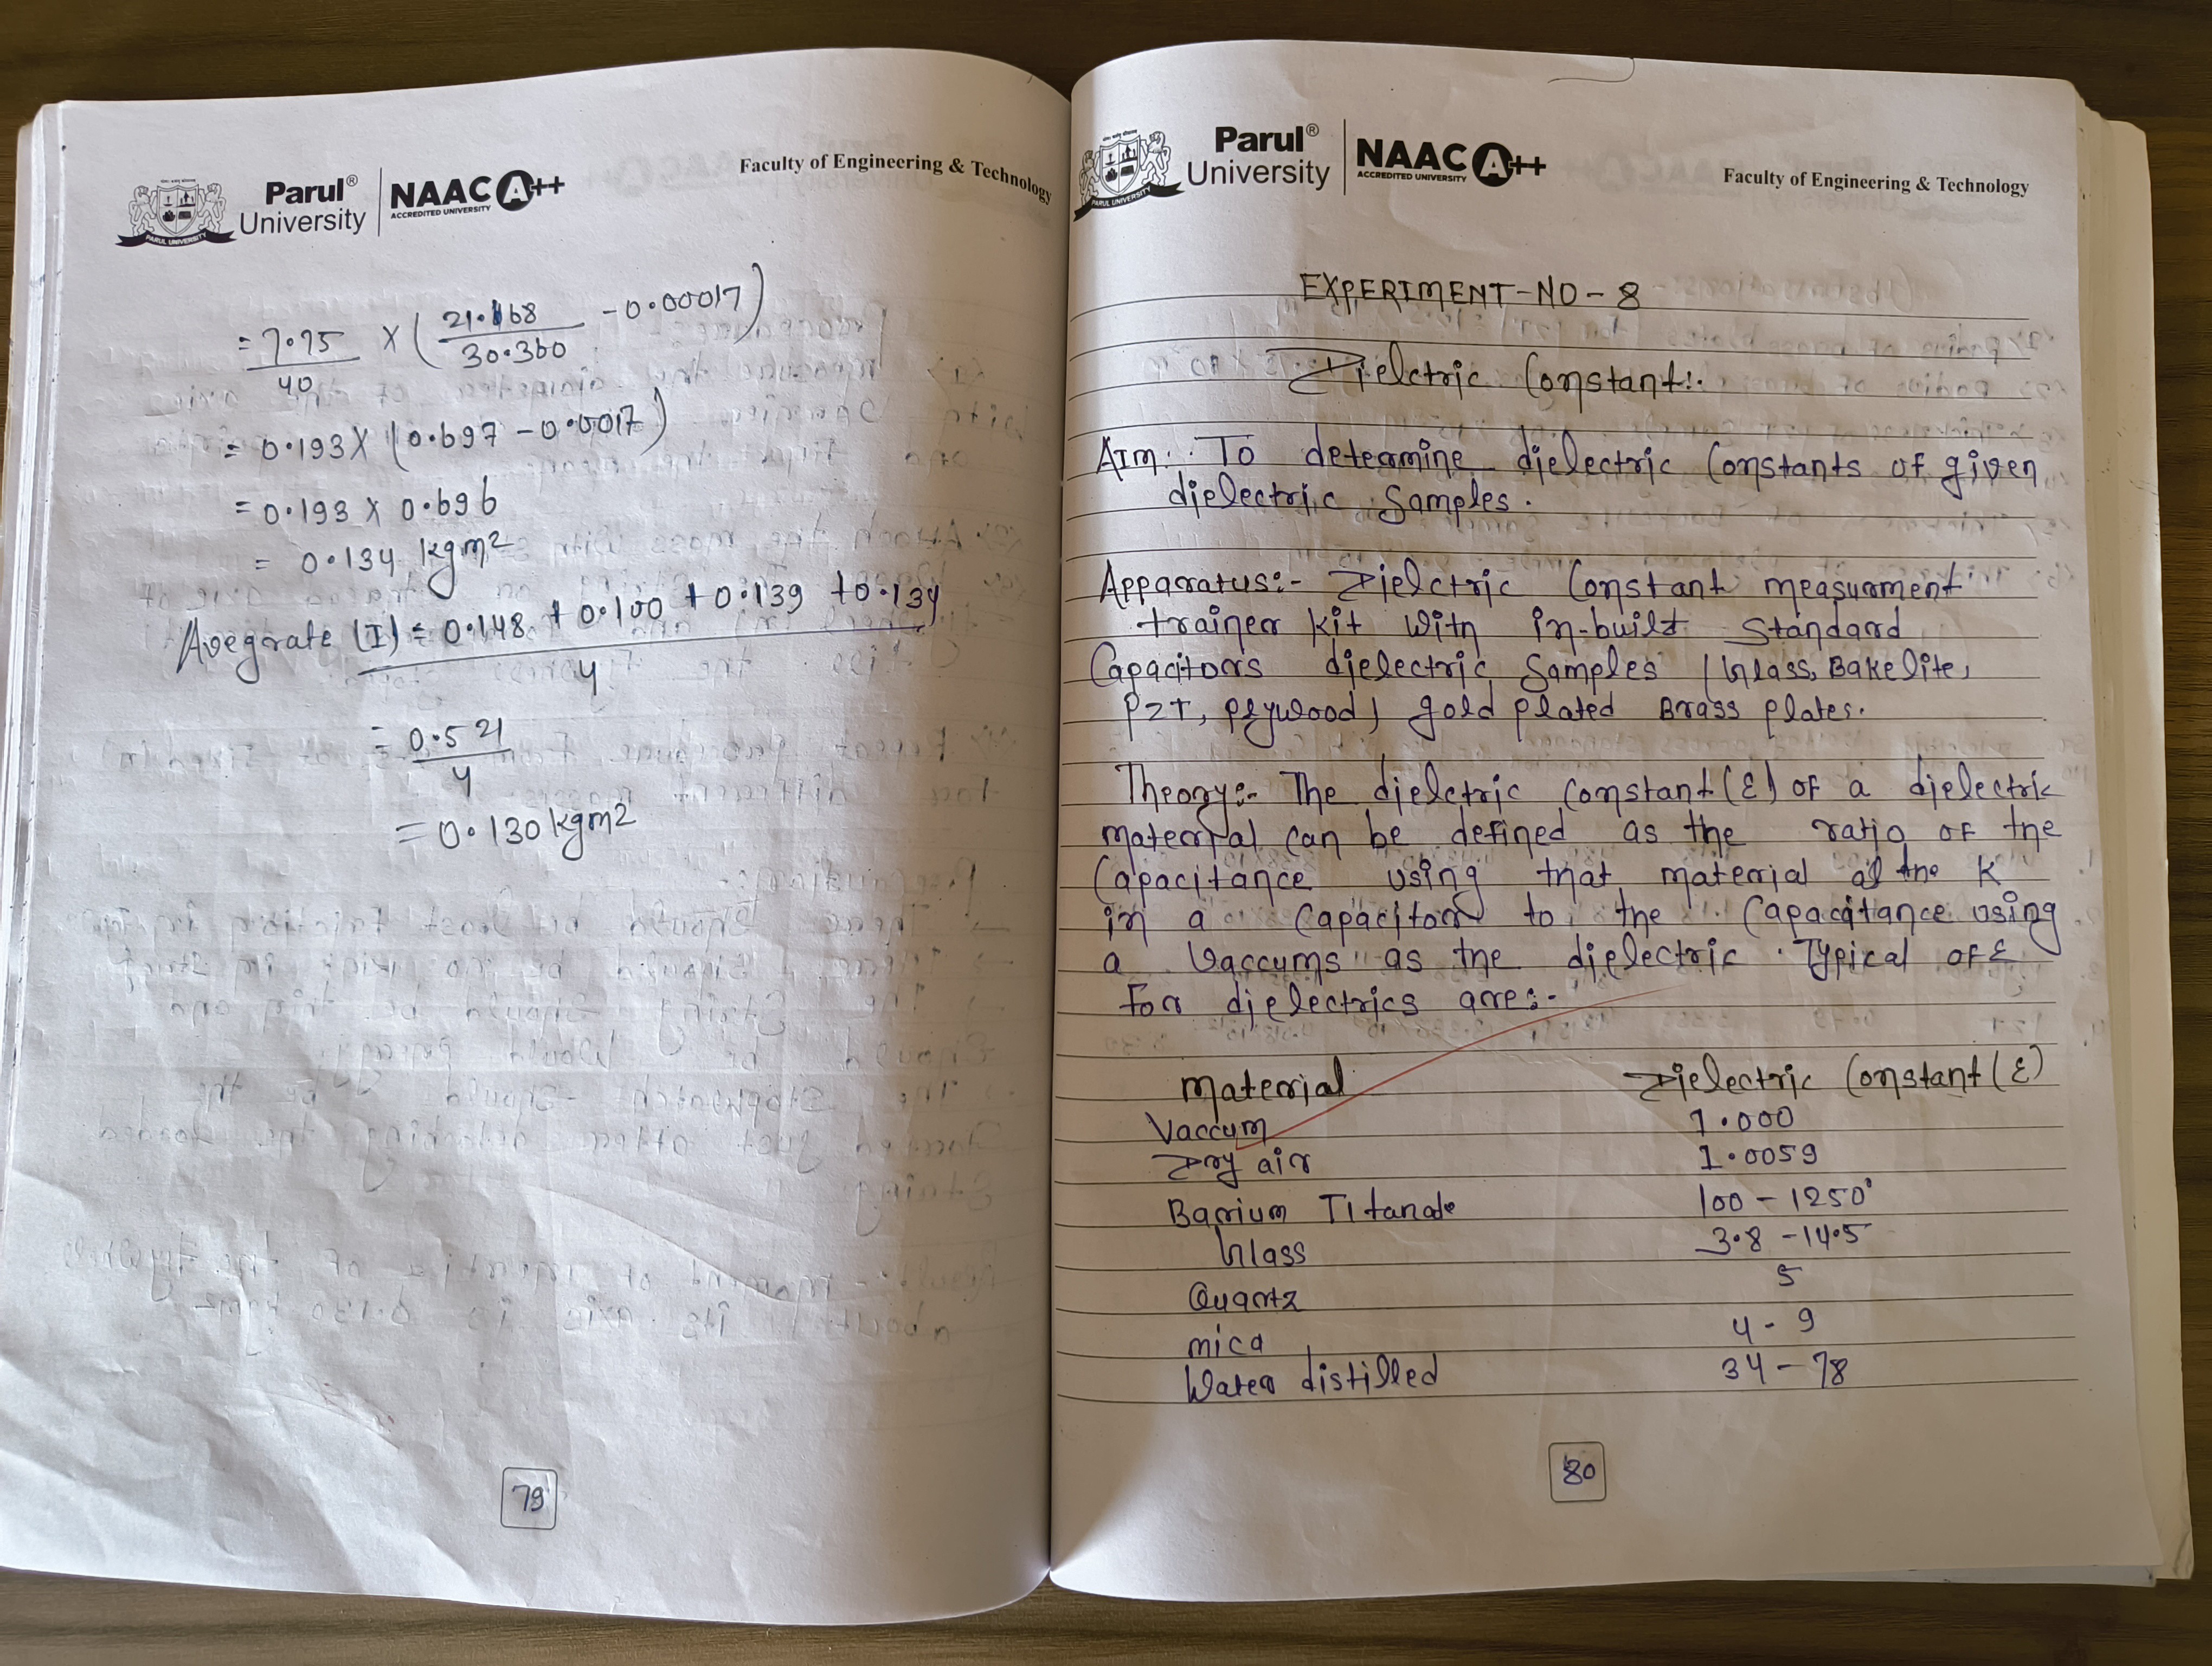 Parul®
University
NAAC A++
ACCREDITED UNIVERSITY
PARUL UNIVERSITY
Faculty of Engineering & Technology
= 7.75 / 40 × ( 21.168 / 30.360 - 0.00017 )
= 0.193 × (0.697 - 0.0017)
= 0.193 × 0.696
= 0.134 kgm2
Avegrate (I) = 0.148 + 0.100 + 0.139 + 0.134 / 4
= 0.521 / 4
= 0.130 kgm2
79
Parul®
University
NAAC A++
ACCREDITED UNIVERSITY
PARUL UNIVERSITY
Faculty of Engineering & Technology
EXPERIMENT-NO-8
Dielctric Constant:.
AIM:. To determine dielectric Constants of given
dielectric Samples.
Apparatus:- Dielctric Constant measurment
trainer kit with in-built Standard
Capacitors dielectric Samples (Glass, Bakelite,
PZT, plywood) gold plated Brass plates.
Theory:- The dielctric constant (ε) of a dielectric
material can be defined as the ratio of the
Capacitance using that material as the K
in a Capacitor to the Capacitance using
a Vaccums as the dielectric. Typical of ε
for dielectrics are:-
Material Dielectric Constant (ε)
Vaccum 1.000
Dry air 1.0059
Barium Titanate 100 - 1250
Glass 3.8 - 14.5
Quartz 5
mica 4 - 9
Water distilled 34 - 78
80